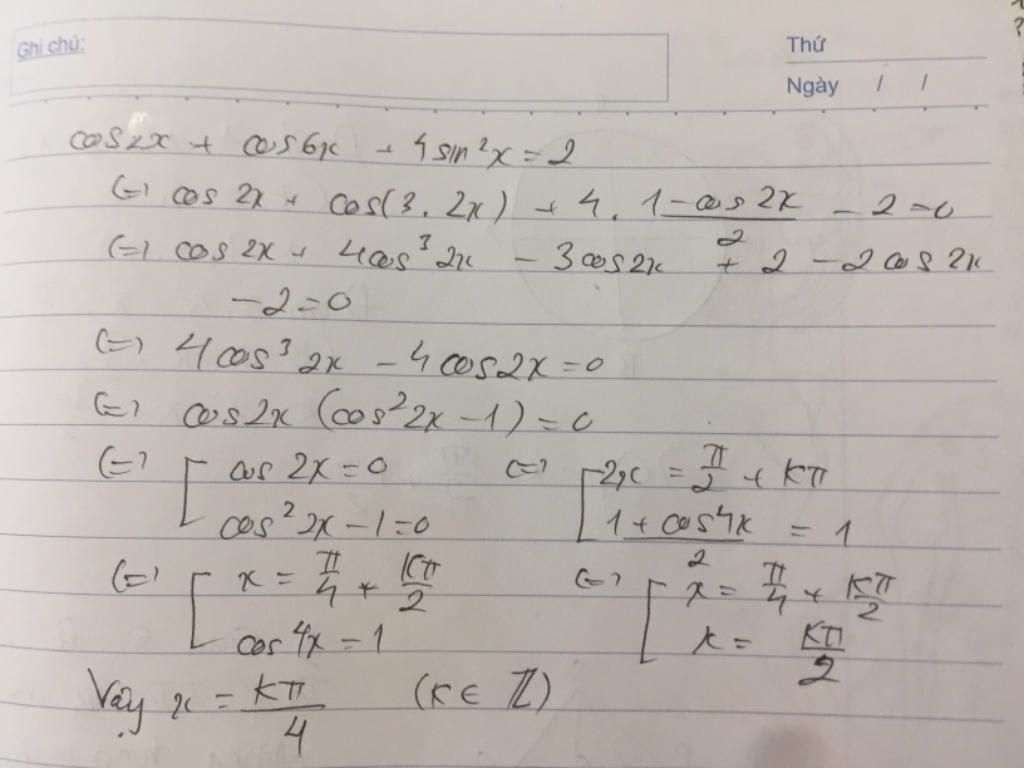 Ghi chú:
Thứ
Ngày / /
cos2x + cos6x + 4sin²x = 2
(=) cos 2x + cos(3. 2x) + 4. (1-cos 2x)/2 - 2 = 0
(=) cos 2x + 4cos³ 2x - 3cos2x + 2 - 2cos 2x
- 2 = 0
(=) 4cos³ 2x - 4cos2x = 0
(=) cos2x (cos²2x - 1) = 0
(=) [ cos 2x = 0 (=) [ 2x = π/2 + Kπ
cos² 2x - 1 = 0 (1 + cos4x)/2 = 1
(=) [ x = π/4 + Kπ/2 (=) [ x = π/4 + Kπ/2
cos4x = 1 x = Kπ/2
Vậy x = Kπ/4 (K ∈ ℤ)